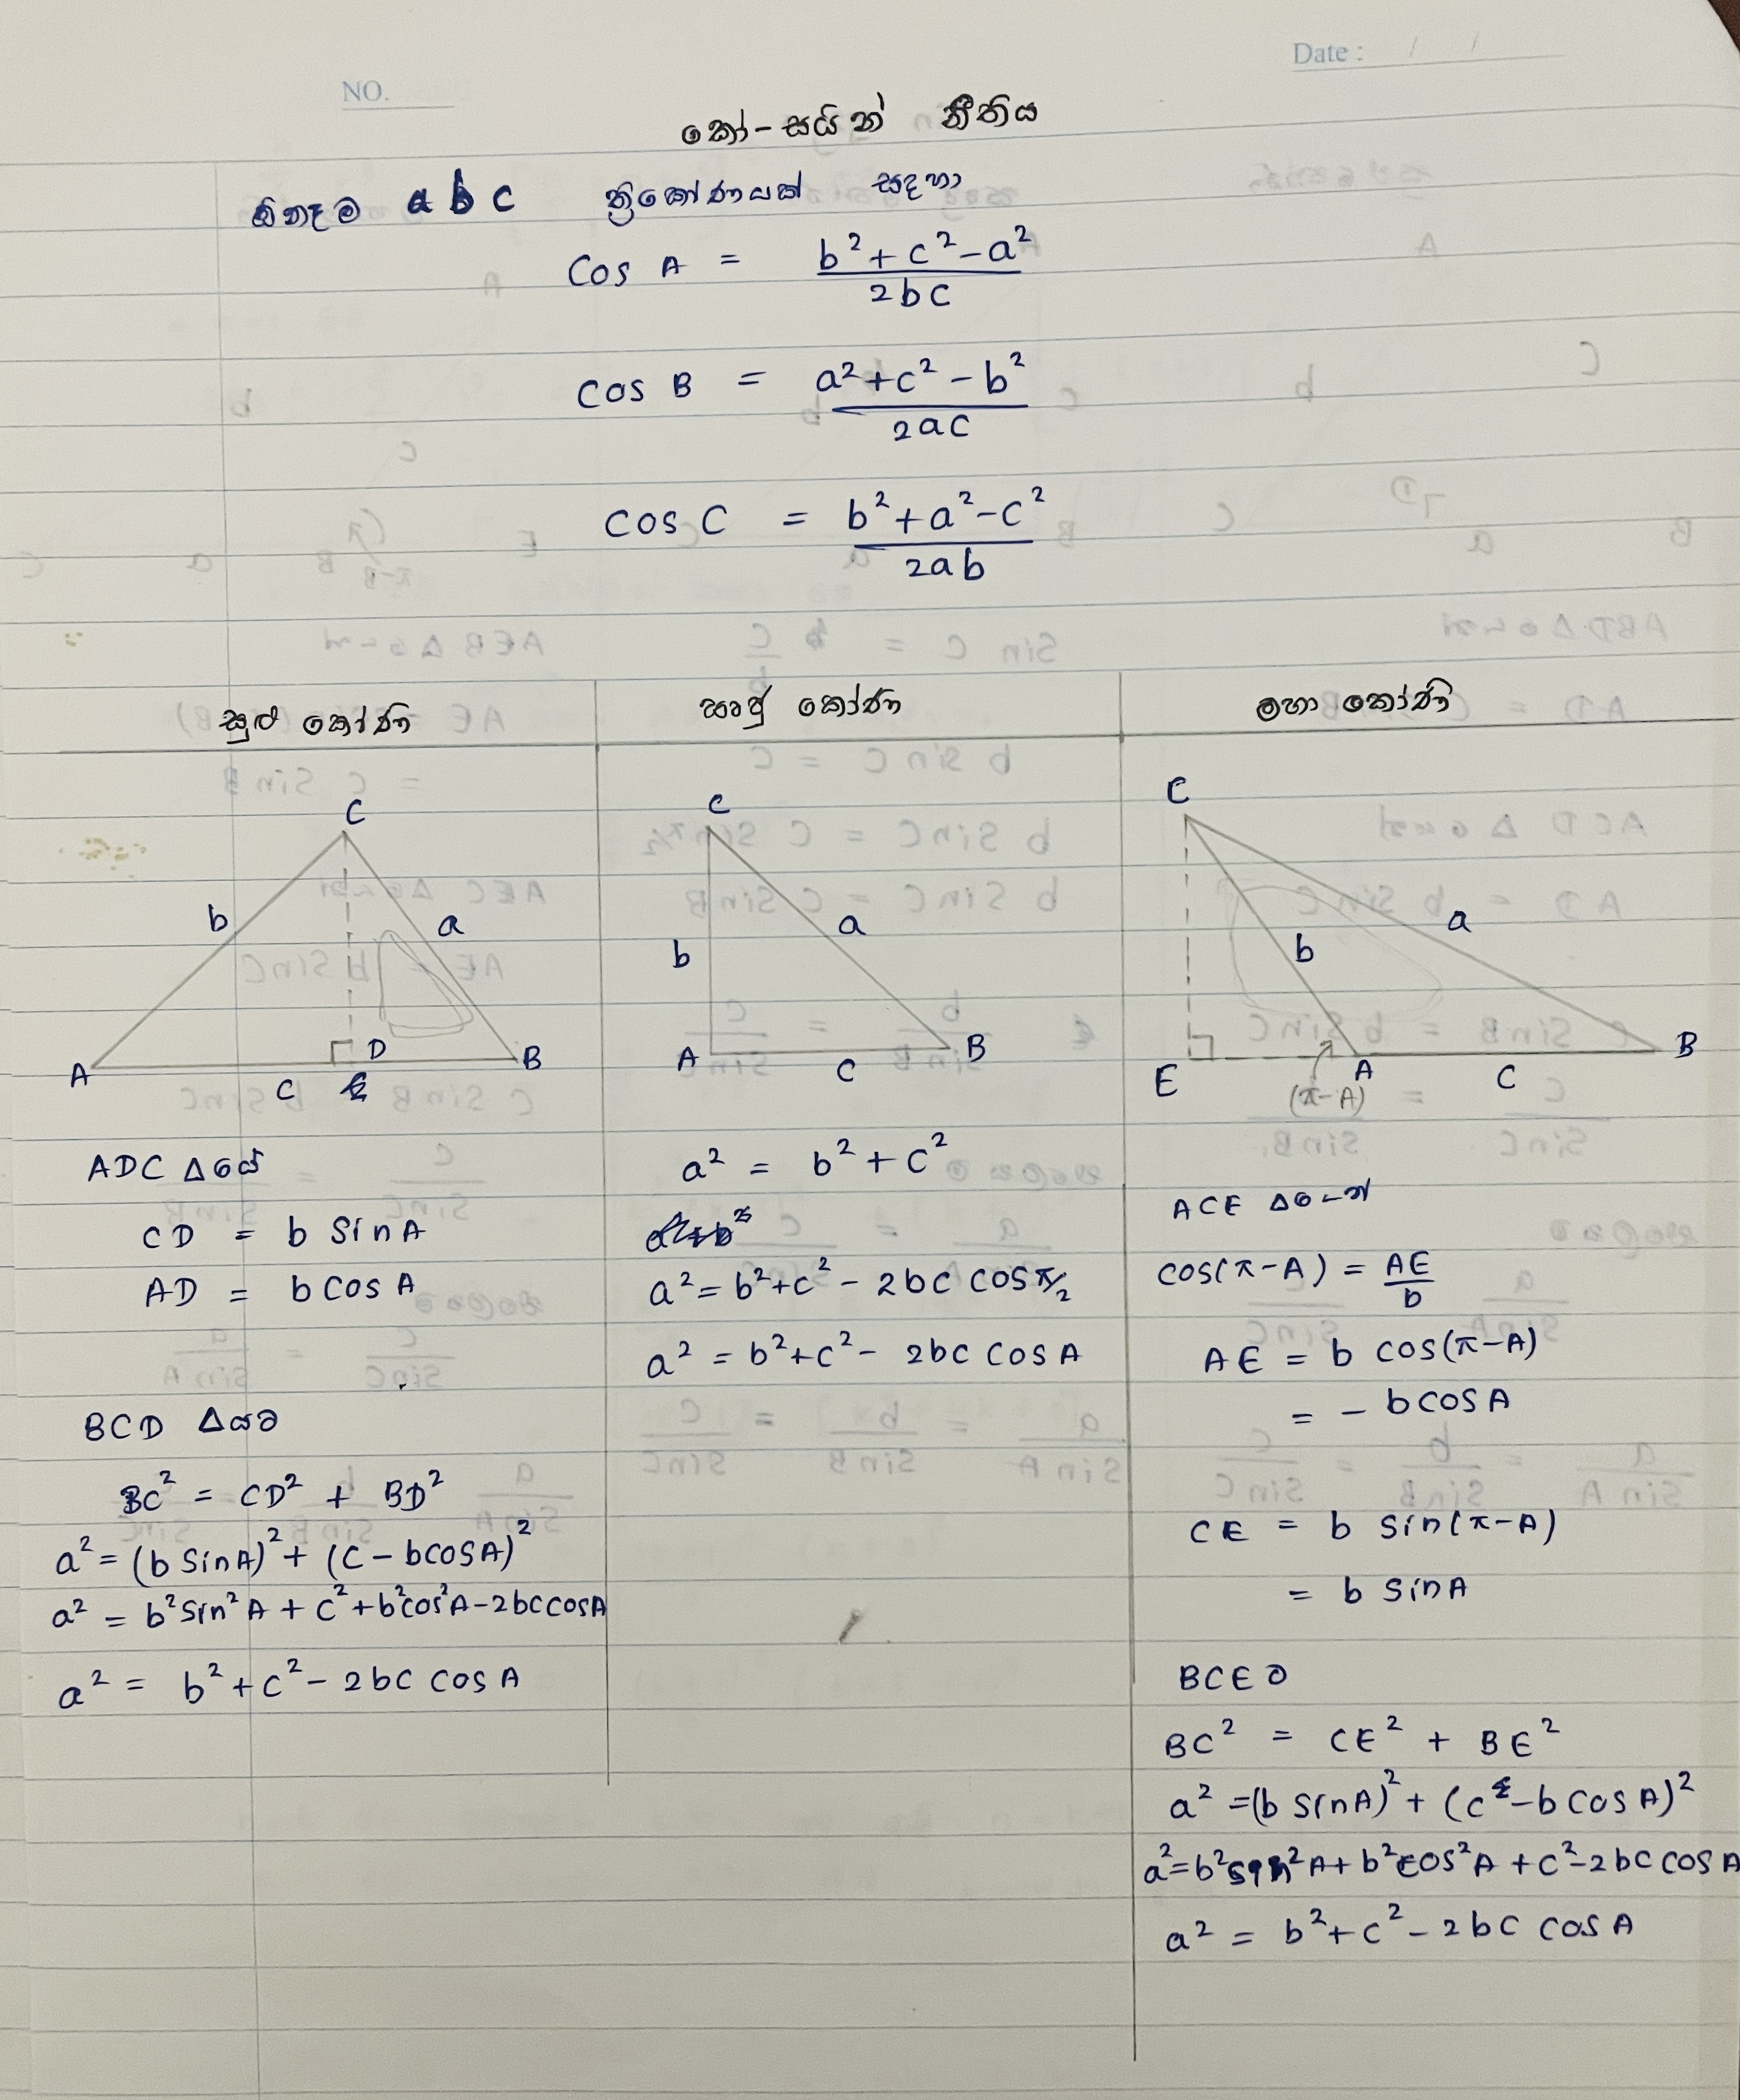 NO.
Date : / /
කෝ-සයින් නීතිය
ඕනෑම a b c ත්‍රිකෝණයක් සඳහා
Cos A = b²+c²-a² / 2bc
Cos B = a²+c²-b² / 2ac
Cos C = b²+a²-c² / 2ab
සුළු කෝණි
C
b a
D
A B
C
ADC Δයේ
CD = b SinA
AD = b cos A
BCD Δයට
BC² = CD² + BD²
a² = (b SinA)² + (C - bcosA)²
a² = b²Sin²A + c² + b²cos²A - 2bc cosA
a² = b² + c² - 2bc cos A
ඍජු කෝණි
C
a
b
A B
C
a² = b² + c²
a² = b²+c² - 2bc cos π/2
a² = b²+c² - 2bc cos A
මහා කෝණි
C
a
b
B
E A C
(π-A)
ACE Δයෙන්
cos(π-A) = AE / b
AE = b cos(π-A)
= - bcosA
CE = b sin(π-A)
= b sinA
BCE
BC² = CE² + BE²
a² = (b sinA)² + (c - b cos A)²
a² = b²sin²A + b²cos²A + c² - 2bc cos A
a² = b² + c² - 2bc cos A